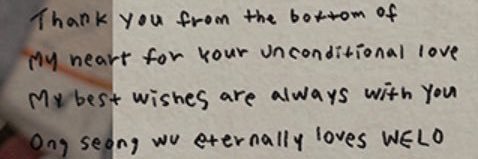 Thank you from the bottom of
My heart for your unconditional love
My best wishes are always with you
Ong seong wu eternally loves WELO